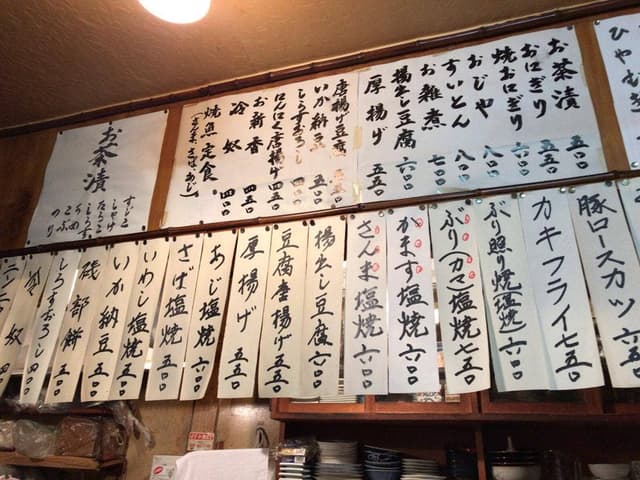 ひや
お茶漬 五五〇
おにぎり 五五〇
焼おにぎり 六〇〇
おじや 八〇〇
すいとん 八〇〇
お雑煮 七〇〇
揚出し豆腐 六〇〇
厚揚げ 五五〇
唐揚げ豆腐 五五〇
いか納豆 五〇〇
しらすおろし
にんにく唐揚げ 四五〇
お新香 四〇〇
冷奴 四〇〇
焼魚定食
(さんま、さば、あじ)
お茶漬
すじこ
しゃけ
たらこ
しらす
うめ
こぶ
のり
豚ロースカツ
カキフライ 七五〇
ぶり照り焼(塩焼) 六〇〇
ぶり(カマ)塩焼 七五〇
かます塩焼 六〇〇
さんま塩焼 六〇〇
揚出し豆腐 六〇〇
豆腐唐揚げ 五五〇
厚揚げ 五五〇
あじ塩焼 五五〇
さば塩焼 五五〇
いわし塩焼 五五〇
いか納豆 五〇〇
磯部餅 五〇〇
しらすおろし